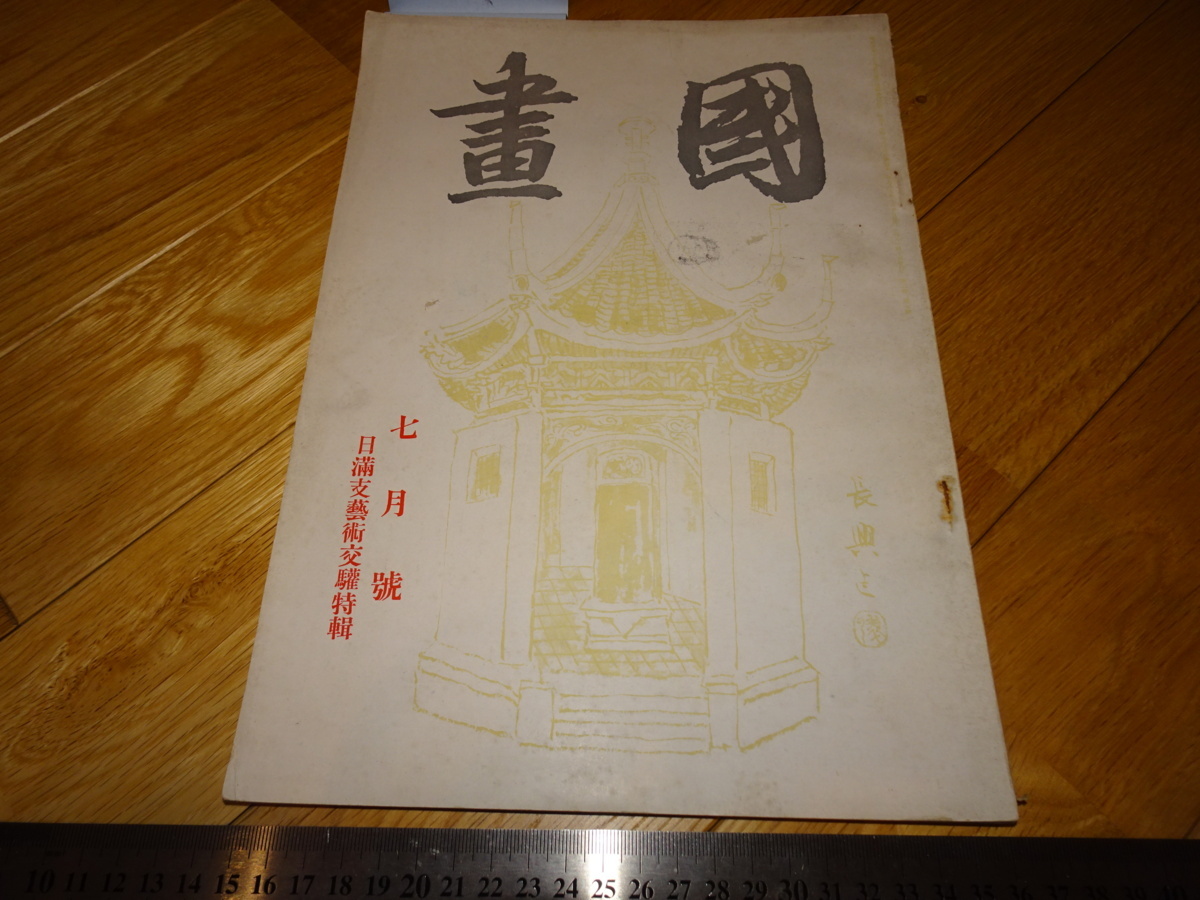 國畫
七月號
日滿支藝術交驩特輯
長興
10 11 12 13 14 15 16 17 18 19 20 21 22 23 24 25 26 27 28 29 30 31 32 33 34 35 36 37 38 39